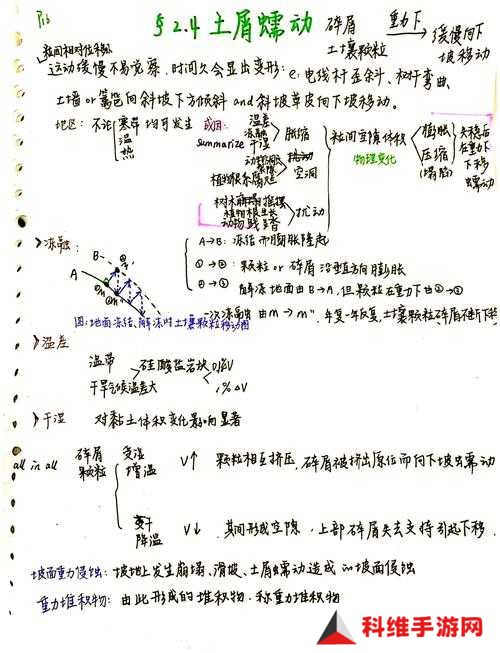 P15
§2.4 土屑蠕动 碎屑 土壤颗粒 重力下 缓慢向下坡移动
运动缓慢不易觉察，时间久会显出变形：e：电线杆歪斜、树干弯曲、
土墙 or 篱笆向斜坡下方倾斜 and 斜坡草皮向下坡移动。
地区：不论 寒 温 热 带均可发生
成因：
summarize
温差
冻融
干湿
胀缩
植物根系腐烂
空洞
树木 摇摆
植物根生长
动物践踏
扰动
粒间空隙体积
物理变化
膨胀
压缩
(塌陷)
失稳后
在重力
下移
蠕动
>冻融：
B
A
A→B：冻结而膨胀隆起
①→②：颗粒 or 碎屑 沿垂直方向膨胀
②→③ 解冻地面由B→A，但颗粒在重力下由②→③
一次冻融由m→m''，年复一年反复，土壤颗粒碎屑不断下移
图：地面冻结、解冻时土壤颗粒移动图
>温差
温带
干旱气候温差大
硅酸盐岩块
1% ΔV
>干湿 对黏土体积变化影响显著
all in all 碎屑 颗粒
受湿 增温 V↑ 颗粒相互挤压，碎屑被挤出原位而向下坡蠕动
变干 降温 V↓ 其间形成空隙，上部碎屑失去支持引起下移．
坡面重力侵蚀：坡地上发生崩塌、滑坡、土屑蠕动造成的坡面侵蚀
重力堆积物：由此形成的堆积物．称重力堆积物
科维手游网